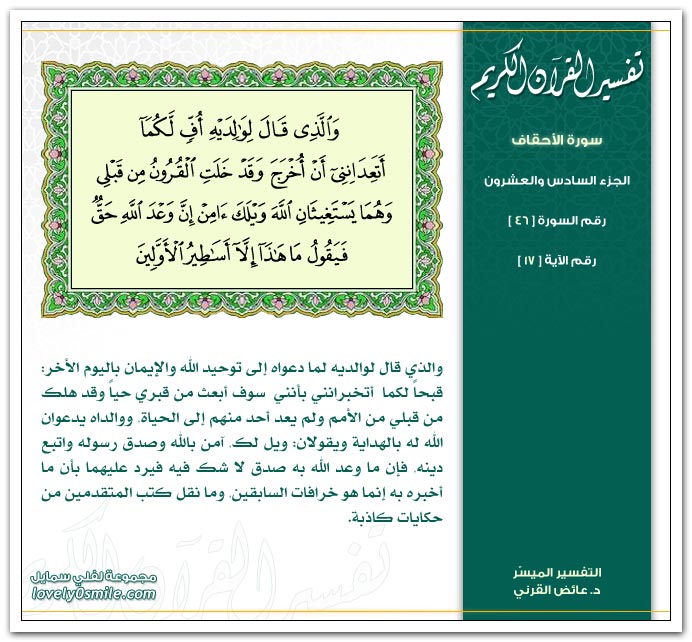 تفسير القرآن الكريم
سورة الأحقاف
الجزء السادس والعشرون
رقم السورة [ ٤٦ ]
رقم الآية [ ١٧ ]
وَالَّذِى قَالَ لِوَٰلِدَيْهِ أُفٍّ لَّكُمَآ
أَتَعِدَانِنِىٓ أَنْ أُخْرَجَ وَقَدْ خَلَتِ ٱلْقُرُونُ مِن قَبْلِى
وَهُمَا يَسْتَغِيثَانِ ٱللَّهَ وَيْلَكَ ءَامِنْ إِنَّ وَعْدَ ٱللَّهِ حَقٌّ
فَيَقُولُ مَا هَٰذَآ إِلَّآ أَسَٰطِيرُ ٱلْأَوَّلِينَ
والذي قال لوالديه لما دعواه إلى توحيد الله والإيمان باليوم الأخر:
قبحاً لكما أتخبرانني بأنني سوف أبعث من قبري حياً وقد هلك
من قبلي من الأمم ولم يعد أحد منهم إلى الحياة، ووالداه يدعوان
الله له بالهداية ويقولان: ويل لك، آمن بالله وصدق رسوله واتبع
دينه، فإن ما وعد الله به صدق لا شك فيه فيرد عليهما بأن ما
أخبره به إنما هو خرافات السابقين، وما نقل كتب المتقدمين من
حكايات كاذبة.
تفسير القرآن الكريم
مجموعة لفلي سمايل
lovely0smile.com
التفسير الميسّر
د. عائض القرني